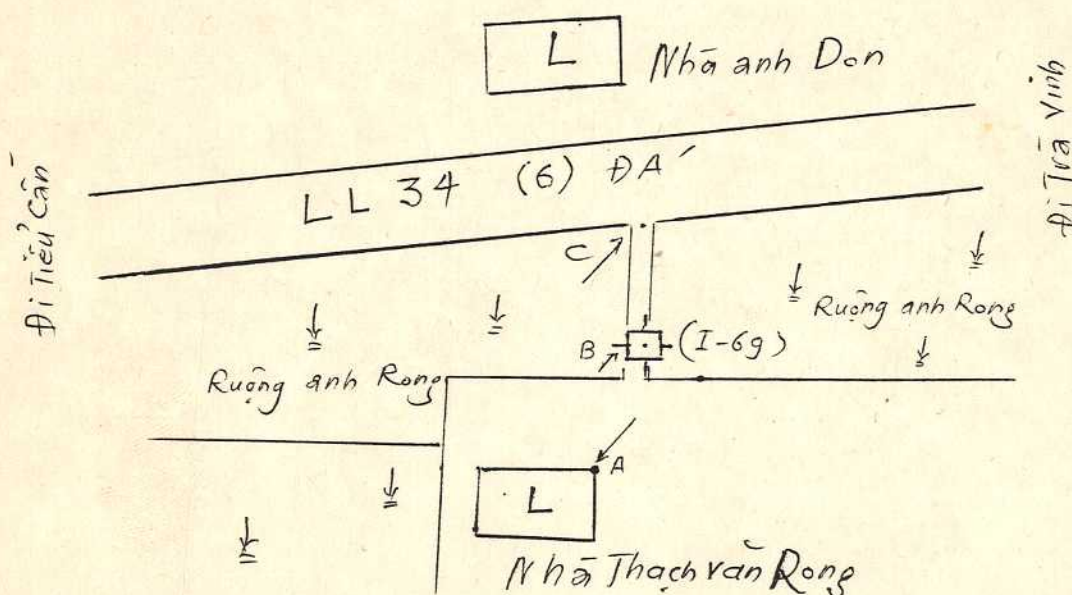 L
Nhà anh Don
Đi Trà Vinh
LL 34 (6) ĐÁ
Đi Tiểu Cần
C
Ruộng anh Rong
B
(I-69)
Ruộng anh Rong
A
L
Nhà Thạch văn Rong